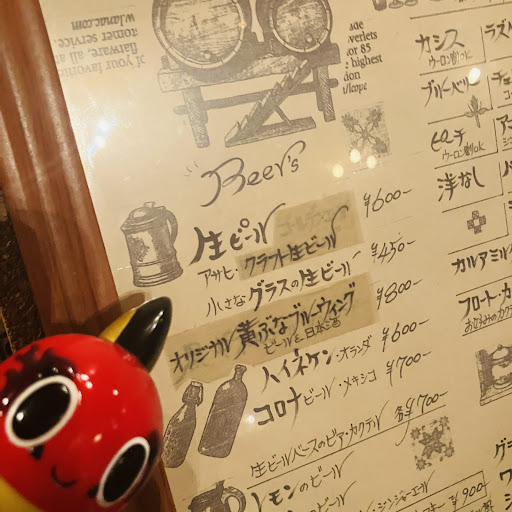 wlanac.com
tomer service.
flatware, all a
of your favorite
ade
overlets
for 85
highest
don
Beer's
生ビール ¥600-
アサヒ・クラフト生ビール
小さな グラスの生ビール ¥450-
オリジナル 黄ぶなブルーウィング ¥800-
ビールと日本酒
ハイネケン・オランダ ¥600-
コロナビール・メキシコ ¥700-
生ビールベースのビア・カクテル 各¥700-
レモンのビール
・シンジャーエール
¥900-
カシス
ウーロン割ok
ブルーベリー
ピーチ
ウーロン割ok
洋なし
カルアミル
フロート・カ
お好みのカク
グラ
ワ